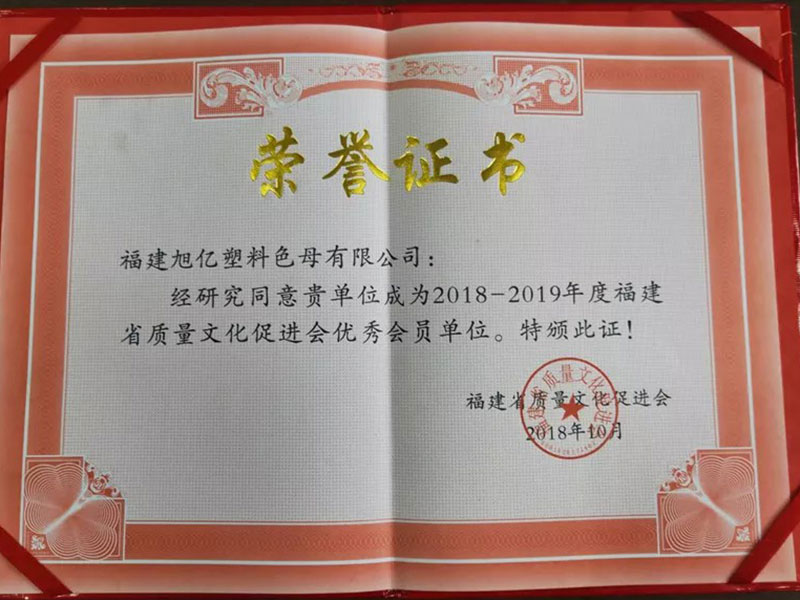 荣誉证书
福建旭亿塑料色母有限公司：
经研究同意贵单位成为2018-2019年度福建
省质量文化促进会优秀会员单位。特颁此证！
福建省质量文化促进会
2018年10月
福建省质量文化促进会